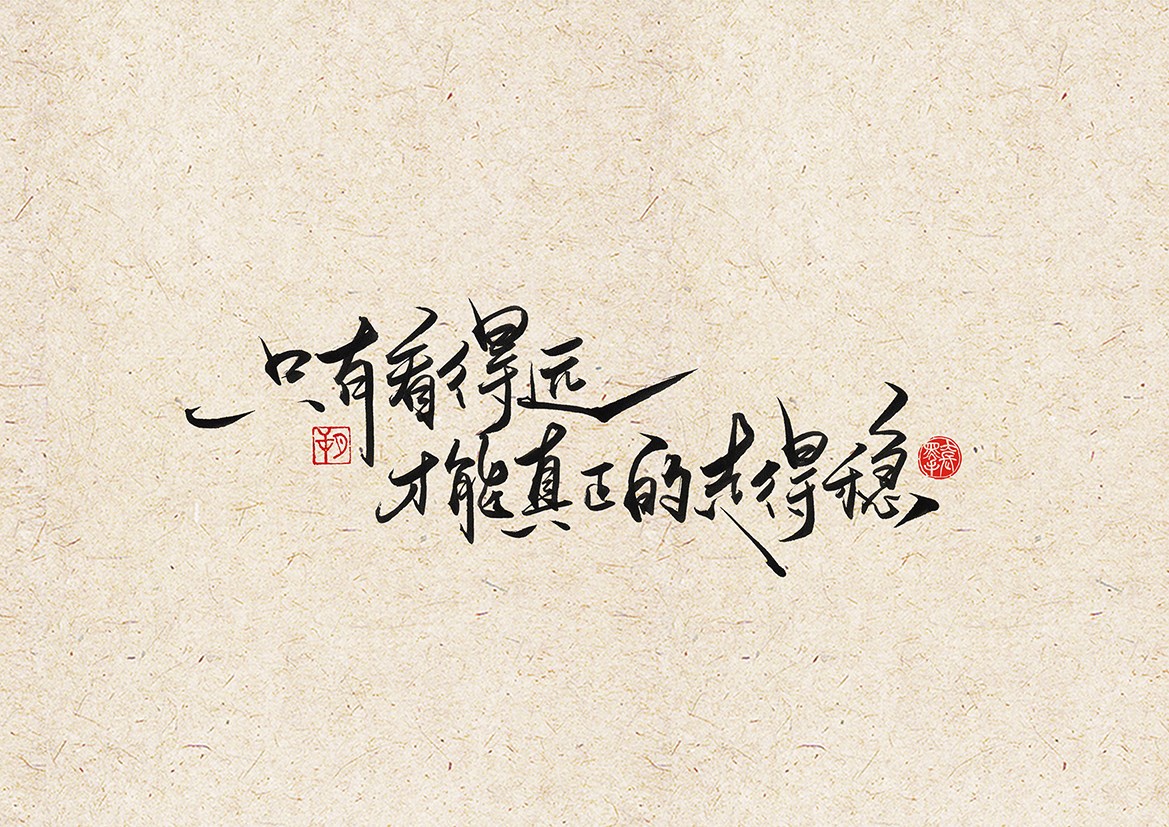 只有看得远
才能真正的走得稳